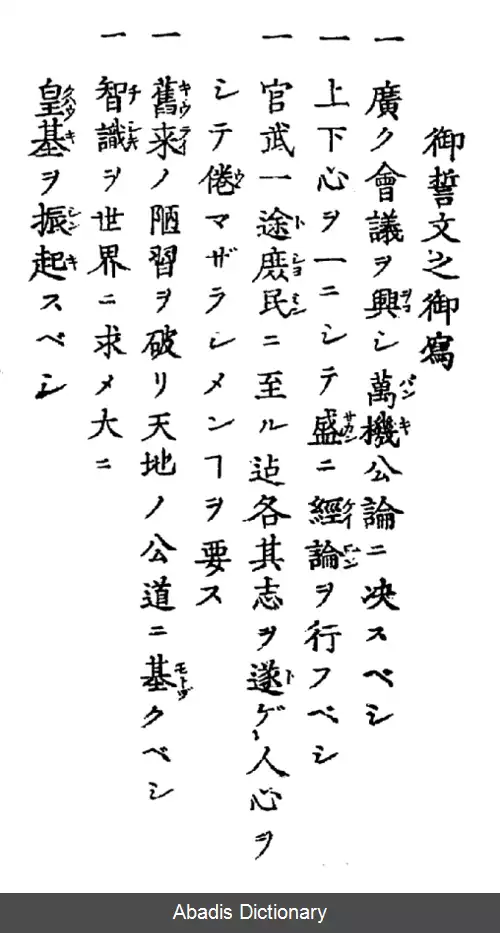 御誓文之御寫
一 廣ク會議ヲ興シ萬機公論ニ决スベシ
一 上下心ヲ一ニシテ盛ニ經論ヲ行フベシ
一 官武一途庶民ニ至ル迠各其志ヲ遂ゲ、人心ヲ
シテ倦マザラシメンヿヲ要ス
一 舊来ノ陋習ヲ破リ天地ノ公道ニ基クベシ
一 智識ヲ世界ニ求メ大ニ
皇基ヲ振起スベシ
Abadis Dictionary